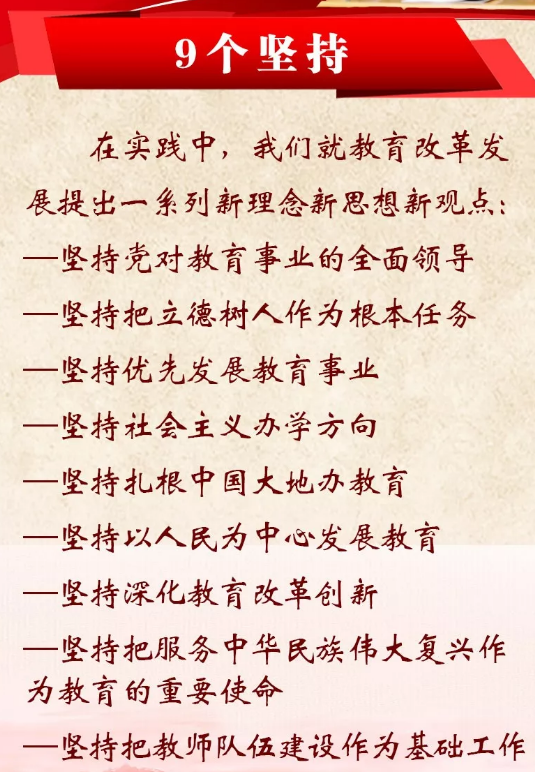 9个坚持
在实践中，我们就教育改革发
展提出一系列新理念新思想新观点：
—坚持党对教育事业的全面领导
—坚持把立德树人作为根本任务
—坚持优先发展教育事业
—坚持社会主义办学方向
—坚持扎根中国大地办教育
—坚持以人民为中心发展教育
—坚持深化教育改革创新
—坚持把服务中华民族伟大复兴作
为教育的重要使命
—坚持把教师队伍建设作为基础工作